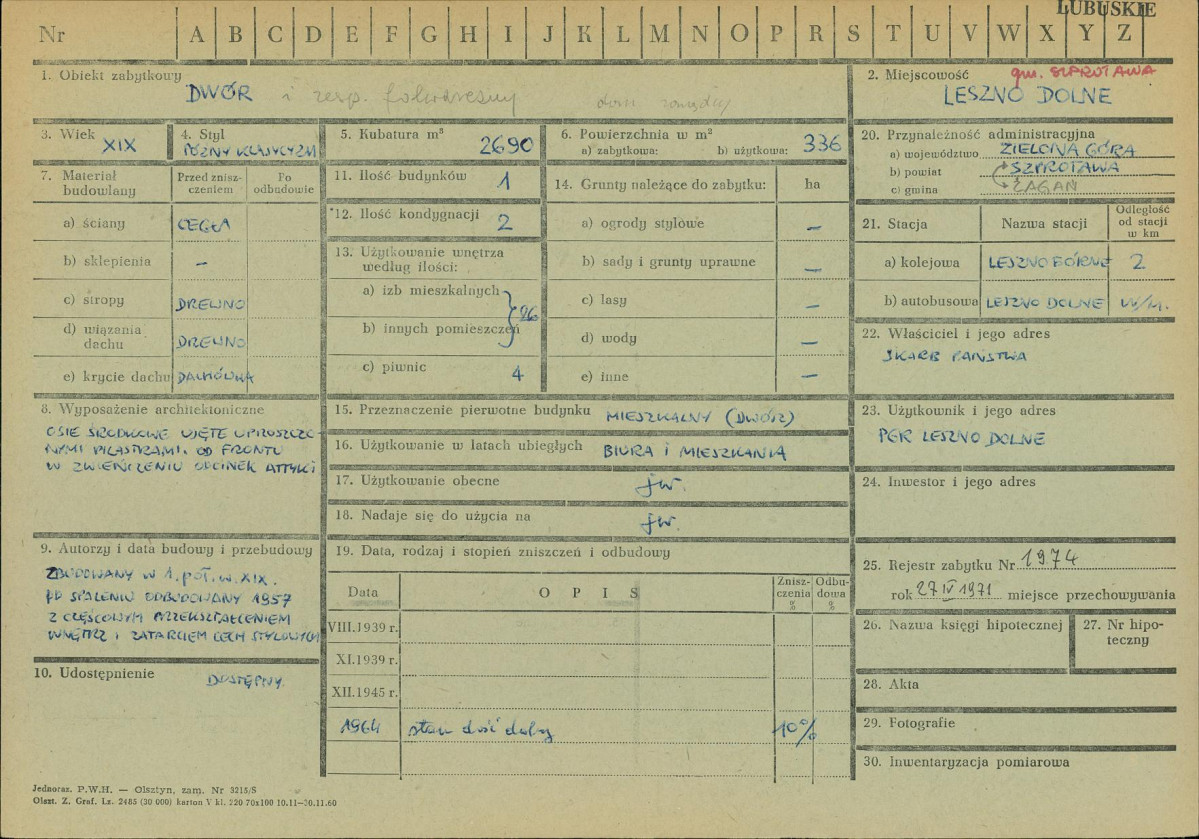 LUBUSKIE
Nr A B C D E F G H I J K L M N O P R S T U V W X Y Z
1. Obiekt zabytkowy
DWÓR i zesp. folwarczny
2. Miejscowość gm. SZPROTAWA
LESZNO DOLNE
3. Wiek
XIX
4. Styl
PÓŹNY KLASYCYZM
5. Kubatura m³
2690
6. Powierzchnia w m²
a) zabytkowa: b) użytkowa: 336
20. Przynależność administracyjna
a) województwo ZIELONA GÓRA
b) powiat SZPROTAWA
c) gmina ŻAGAŃ
7. Materiał budowlany
Przed zniszczeniem
Po odbudowie
a) ściany CEGŁA
b) sklepienia –
c) stropy DREWNO
d) wiązania dachu DREWNO
e) krycie dachu DACHÓWKA
11. Ilość budynków 1
12. Ilość kondygnacji 2
13. Użytkowanie wnętrza
według ilości:
a) izb mieszkalnych
b) innych pomieszczeń 26
c) piwnic 4
14. Grunty należące do zabytku: ha
a) ogrody stylowe –
b) sady i grunty uprawne –
c) lasy –
d) wody –
e) inne –
21. Stacja Nazwa stacji Odległość od stacji w km
a) kolejowa LESZNO GÓRNE 2
b) autobusowa LESZNO DOLNE W/M.
22. Właściciel i jego adres
SKARB PAŃSTWA
8. Wyposażenie architektoniczne
OSIE ŚRODKOWE UJĘTE UPROSZCZO-
NYMI PILASTRAMI. OD FRONTU
W ZWIEŃCZENIU ODCINEK ATTYKI
15. Przeznaczenie pierwotne budynku MIESZKALNY (DWÓR)
16. Użytkowanie w latach ubiegłych BIURA I MIESZKANIA
17. Użytkowanie obecne jw.
18. Nadaje się do użycia na jw.
23. Użytkownik i jego adres
PGR LESZNO DOLNE
24. Inwestor i jego adres
9. Autorzy i data budowy i przebudowy
ZBUDOWANY W 1. POŁ. W. XIX.
PO SPALENIU ODBUDOWANY 1957
Z CZĘŚCIOWYM PRZEKSZTAŁCENIEM
WNĘTRZ I ZATARCIEM CECH STYLOWYCH
10. Udostępnienie DOSTĘPNY.
19. Data, rodzaj i stopień zniszczeń i odbudowy
Data OPIS Zniszczenia % Odbudowa %
VIII.1939 r.
XI.1939 r.
XII.1945 r.
1964 stan dość dobry 10%
25. Rejestr zabytku Nr 1974
rok 27 IV 1971 miejsce przechowywania
26. Nazwa księgi hipotecznej
27. Nr hipoteczny
28. Akta
29. Fotografie
30. Inwentaryzacja pomiarowa
Jednoraz. P.W.H. — Olsztyn, zam. Nr 3215/S
Olszt. Z. Graf. Lz. 2485 (30 000) karton V kl. 220 70x100 10.11—30.11.60